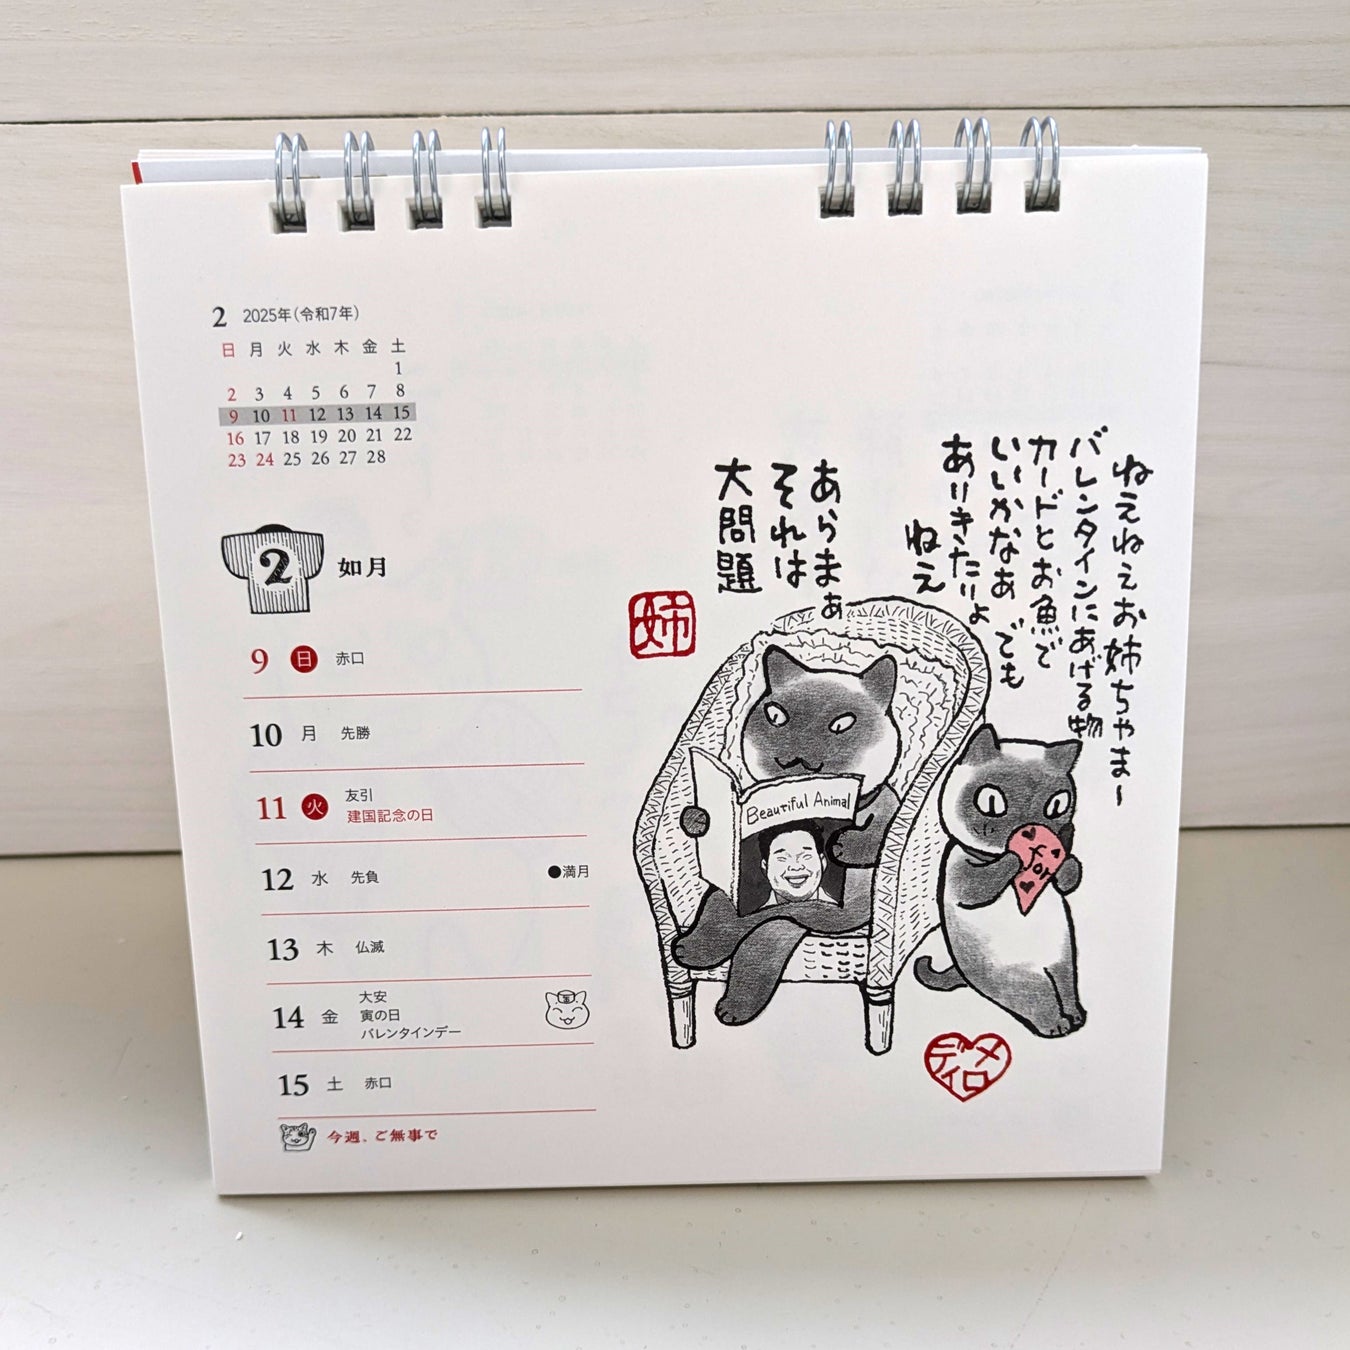 2 2025年(令和7年)
日 月 火 水 木 金 土
1
2 3 4 5 6 7 8
9 10 11 12 13 14 15
16 17 18 19 20 21 22
23 24 25 26 27 28
2 如月
9 日 赤口
10 月 先勝
11 火 友引
建国記念の日
12 水 先負 ●満月
13 木 仏滅
14 金 大安
寅の日
バレンタインデー
15 土 赤口
今週、ご無事で
ねえねえお姉ちゃまー
バレンタインにあげる物
カードとお魚で
いいかなあ でも
ありきたりよ
ねえ
あらまぁ
それは
大問題
姉
Beautiful Animal
for
メロディ